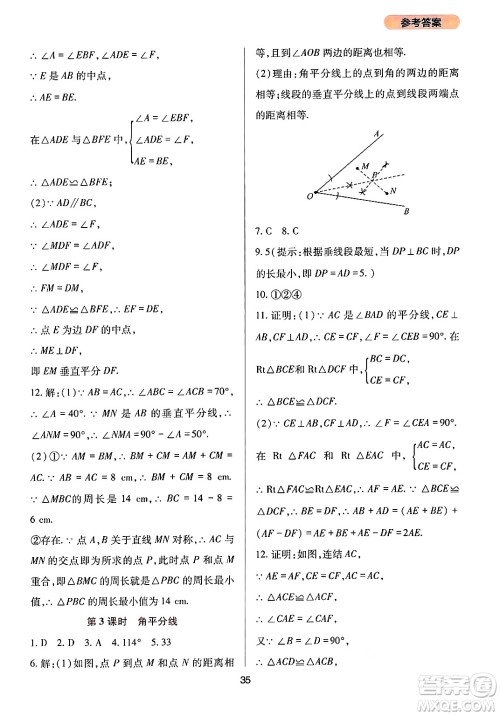 参考答案
∴ ∠A=∠EBF, ∠ADE=∠F.
∵ E 是 AB 的中点,
∴ AE=BE.
在△ADE 与△BFE 中,
∠A=∠EBF,
∠ADE=∠F,
AE=BE,
∴ △ADE≌△BFE.
(2)∵ AD∥BC,
∴ ∠ADE=∠F,
∵ ∠MDF=∠ADE,
∴ ∠MDF=∠F,
∴ FM=DM,
∵ △ADE≌△BFE,
∴ DE=EF,
∴ 点 E 为 DF 的中点,
∴ ME⊥DF,
即 EM 垂直平分 DF.
12.解:(1)∵ AB=AC,∴ ∠ABC=∠ACB=70°,
∴ ∠A=40°.∵ MN 是 AB 的垂直平分线,∴
∠ANM=90°,∴ ∠NMA=90°-40°=50°.
(2)①∵ AM=BM,∴ BM+CM=AM+CM=
AC,∵ AB=AC=8 cm,∴ BM+CM=8 cm,
∵ △MBC的周长是 14 cm,∴ BC=14-8=
6 cm.
②存在.∵ 点 A、B 关于直线 MN 对称,∴ AC 与
MN 的交点即为所求的点 P,此时点 P 和点 M
重合,即△BMC 的周长就是△PBC 周长的最小
值,∴ △PBC 周长的最小值为 14 cm.
第 3 课时 角平分线
1.D 2.D 3.A 4.114° 5.33
6.解:(1)如图,点 P 到点 M 和点 N 的距离相
等,且到∠AOB 两边的距离也相等.
(2)理由:角平分线上的点到角的两边的距离
相等;线段的垂直平分线上的点到线段两端点
的距离相等.
A
M
P
O
N
B
7.C 8.C
9.5(提示:根据垂线段最短,当 DP⊥BC 时,DP
的长最小,即 DP=AD=5.)
10.①②④
11.证明:(1)∵ AC 是∠BAD 的平分线,CE⊥
AB,CF⊥AF,∴ CE=CF,∠F=∠CEB=90°.在
Rt△BCE 和 Rt△DCF 中,
BC=DC,
CE=CF,
∴ Rt△BCE≌Rt△DCF.
(2)∵ CE⊥AB,CF⊥AD,∴ ∠F=∠CEA=90°.
在 Rt△FAC 和 Rt△EAC 中,
AC=AC,
CE=CF,
∴ Rt△FAC≌Rt△EAC,∴ AF=AE.∵ △BCE≌
△DCF,∴ BE=DF,∴ AB+AD=(AE+BE)+
(AF-DF)=AE+BE+AE-DF=2AE.
12.证明:如图,连结 AC,
∵ AE=AF,CE=CF,AC=AC,
∴ △ACE≌△ACF,
∴ ∠CAE=∠CAF,
又∵ CB⊥AD,CD⊥AB,
∴ CB=CD.
35